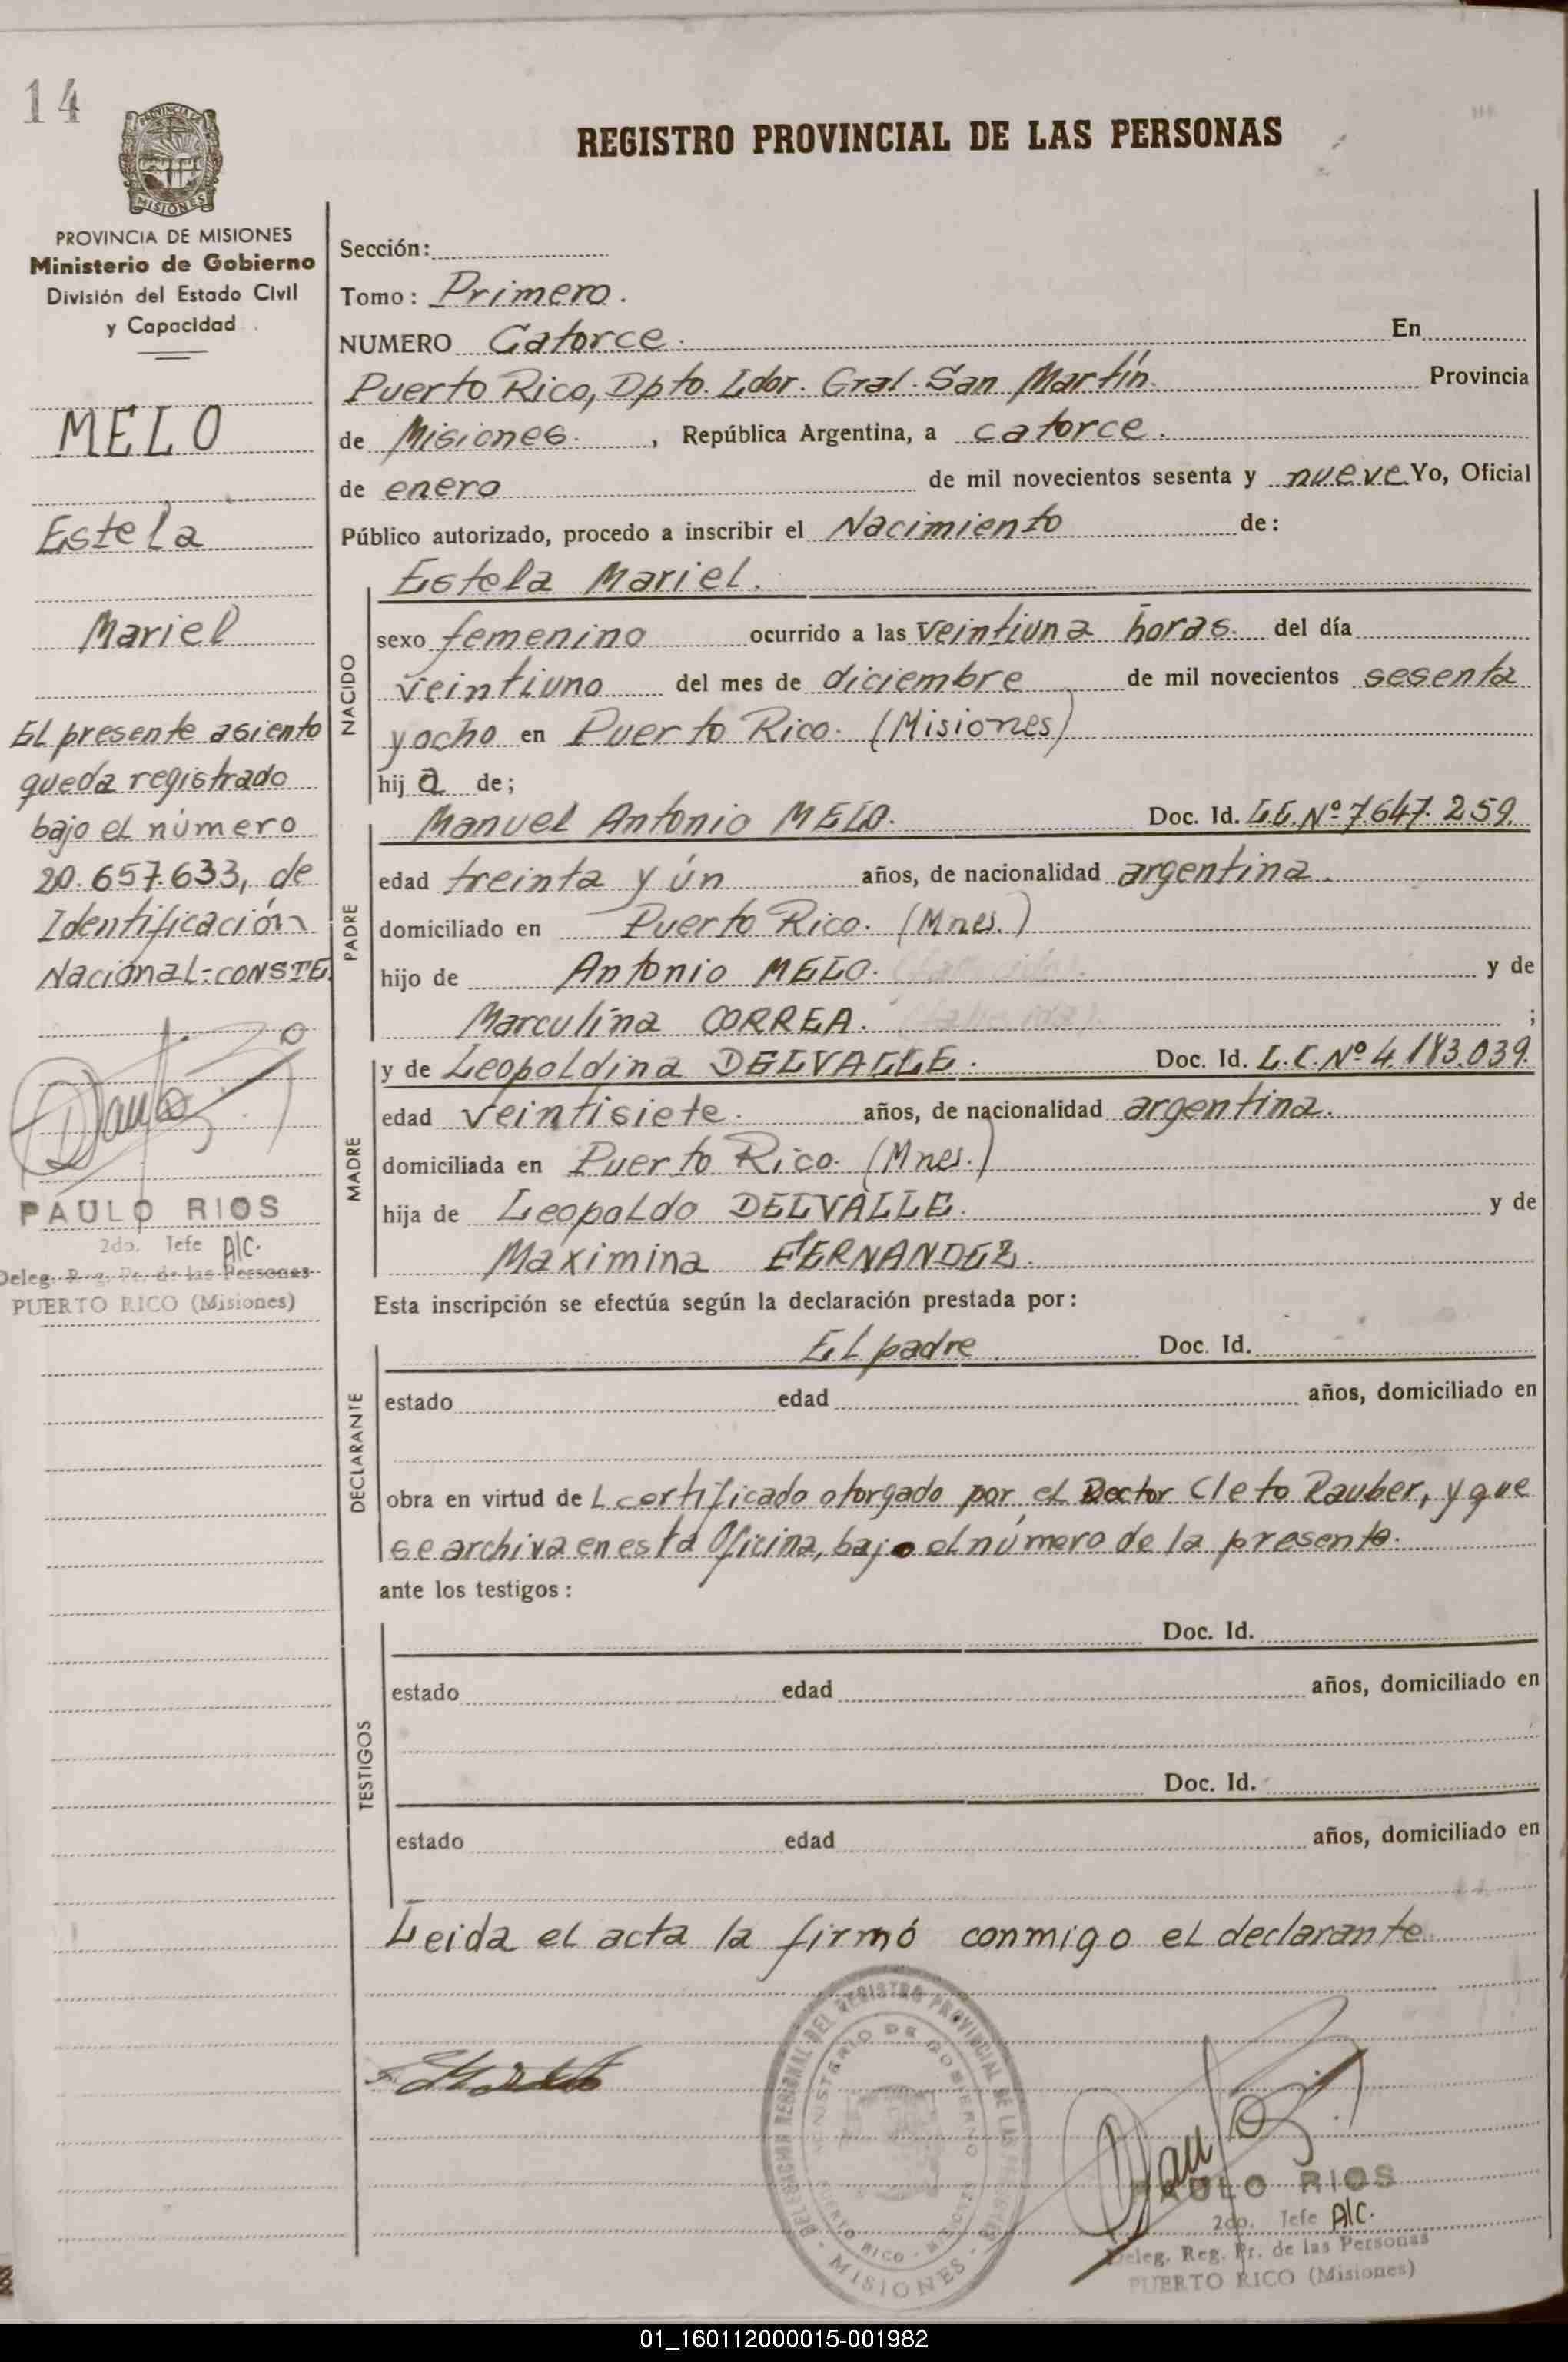 14
PROVINCIA DE
MISIONES
REGISTRO PROVINCIAL DE LAS PERSONAS
PROVINCIA DE MISIONES
Ministerio de Gobierno
División del Estado Civil
y Capacidad
MELO
Estela
Mariel
El presente asiento
queda registrado
bajo el número
20.657.633, de
Identificación
Nacional=CONSTE.
PAULO RIOS
2do. Jefe A/C.
Deleg. Reg. Pr. de las Personas
PUERTO RICO (Misiones)
Sección:
Tomo: Primero.
NUMERO Catorce. En
Puerto Rico, Dpto. Ldor. Gral. San Martín. Provincia
de Misiones. , República Argentina, a catorce.
de enero de mil novecientos sesenta y nueve Yo, Oficial
Público autorizado, procedo a inscribir el Nacimiento de:
NACIDO
Estela Mariel.
sexo femenino ocurrido a las veintiuna horas. del día
veintiuno del mes de diciembre de mil novecientos sesenta
y ocho en Puerto Rico. (Misiones)
hij a de;
PADRE
Manuel Antonio MELO. Doc. Id. L.E. Nº 7.647.259.
edad treinta y ún años, de nacionalidad argentina.
domiciliado en Puerto Rico. (Mnes.)
hijo de Antonio MELO. y de
Marculina CORREA. ;
MADRE
y de Leopoldina DELVALLE. Doc. Id. L.C. Nº 4.183.039.
edad veintisiete. años, de nacionalidad argentina.
domiciliada en Puerto Rico. (Mnes.)
hija de Leopoldo DELVALLE. y de
Maximina FERNANDEZ.
Esta inscripción se efectúa según la declaración prestada por:
DECLARANTE
El padre Doc. Id.
estado edad años, domiciliado en
obra en virtud de l certificado otorgado por el Doctor Cleto Rauber, y que
se archiva en esta Oficina, bajo el número de la presente.
ante los testigos:
TESTIGOS
Doc. Id.
estado edad años, domiciliado en
Doc. Id.
estado edad años, domiciliado en
Leida el acta la firmó conmigo el declarante.
DELEGACION REGIONAL DEL REGISTRO PROVINCIAL DE LAS PERSONAS
MINISTERIO DE GOBIERNO
PUERTO RICO - MISIONES
- MISIONES -
PAULO RIOS
2do. Jefe A/C.
Deleg. Reg. Pr. de las Personas
PUERTO RICO (Misiones)
01_160112000015-001982